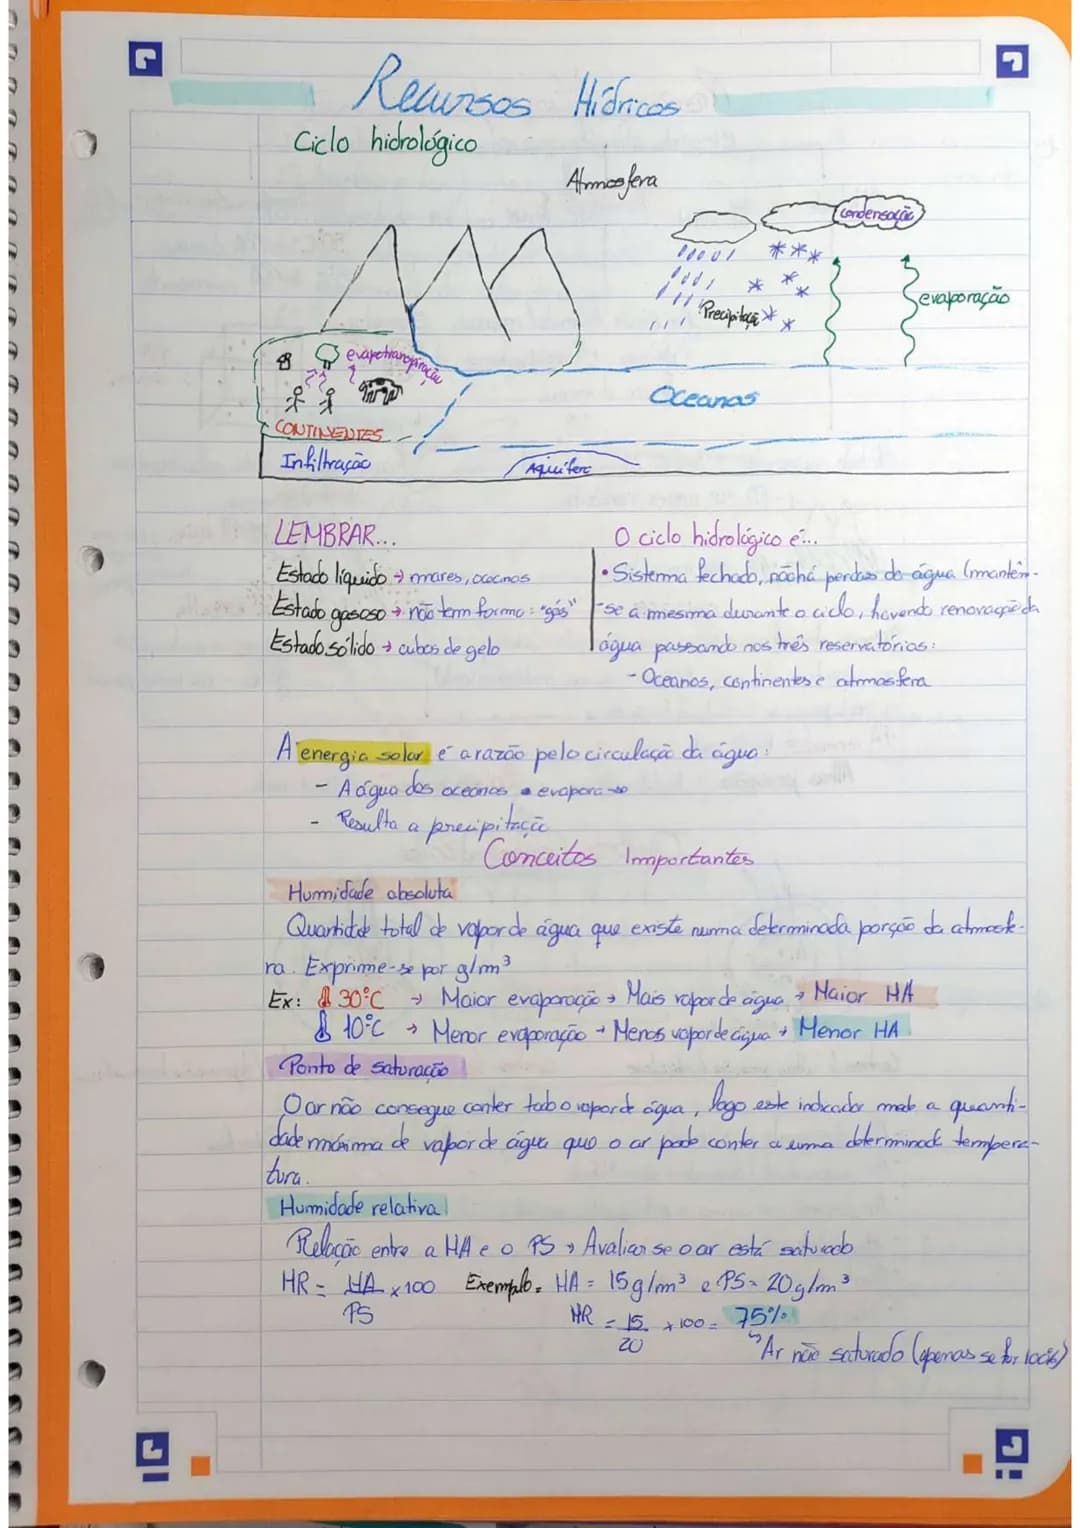 Recursos Hídricos
Ciclo hidrológico
Atmosfera
condensação
Precipitação
evaporação
evapotranspiração
Oceanos
CONTINENTES
Infiltração
Aquífero
LEMBRAR...
Estado líquido → mares, oceanos
Estado gasoso → não tem forma: "gás"
Estado sólido → cubos de gelo
O ciclo hidrológico é...
• Sistema fechado, não há perdas de água (mantém-
-se a mesma durante o ciclo, havendo renovação da
água passando nos três reservatórios:
- Oceanos, continentes e atmosfera
A energia solar é a razão pela circulação da água:
- A água dos oceanos evapora-se
- Resulta a precipitação
Conceitos Importantes
Humidade absoluta
Quantidade total de vapor de água que existe numa determinada porção da atmosfe-
ra. Exprime-se por g/m³
Ex: 30°C → Maior evaporação → Mais vapor de água → Maior HA
10°C → Menor evaporação → Menos vapor de água → Menor HA
Ponto de saturação
O ar não consegue conter todo o vapor de água, logo este indicador mede a quanti-
dade máxima de vapor de água que o ar pode conter a uma determinada tempera-
tura.
Humidade relativa
Relação entre a HA e o PS → Avaliar se o ar está saturado
HR = HA/PS x 100 Exemplo = HA = 15g/m³ e PS = 20g/m³
HR = 15/20 x 100 = 75%
↳ Ar não saturado (apenas se for 100%)